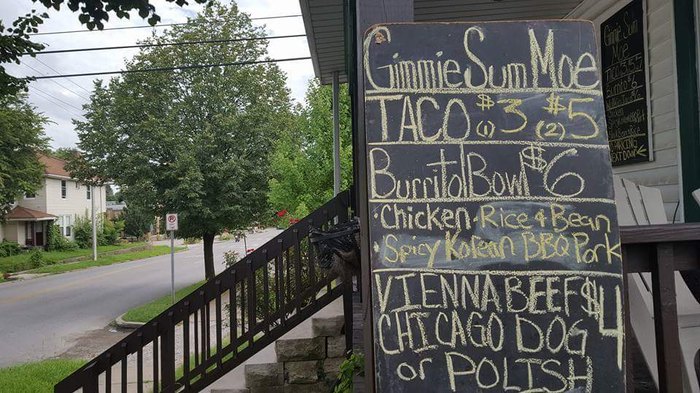 Gimmie Sum Moe
TACO $(1) 3 $(2) 5
Burrito|Bowl $6
·Chicken·Rice & Bean
·Spicy Korean BBQ Pork
VIENNA BEEF $4
CHICAGO DOG
or POLISH
Gimmie Sum
Moe